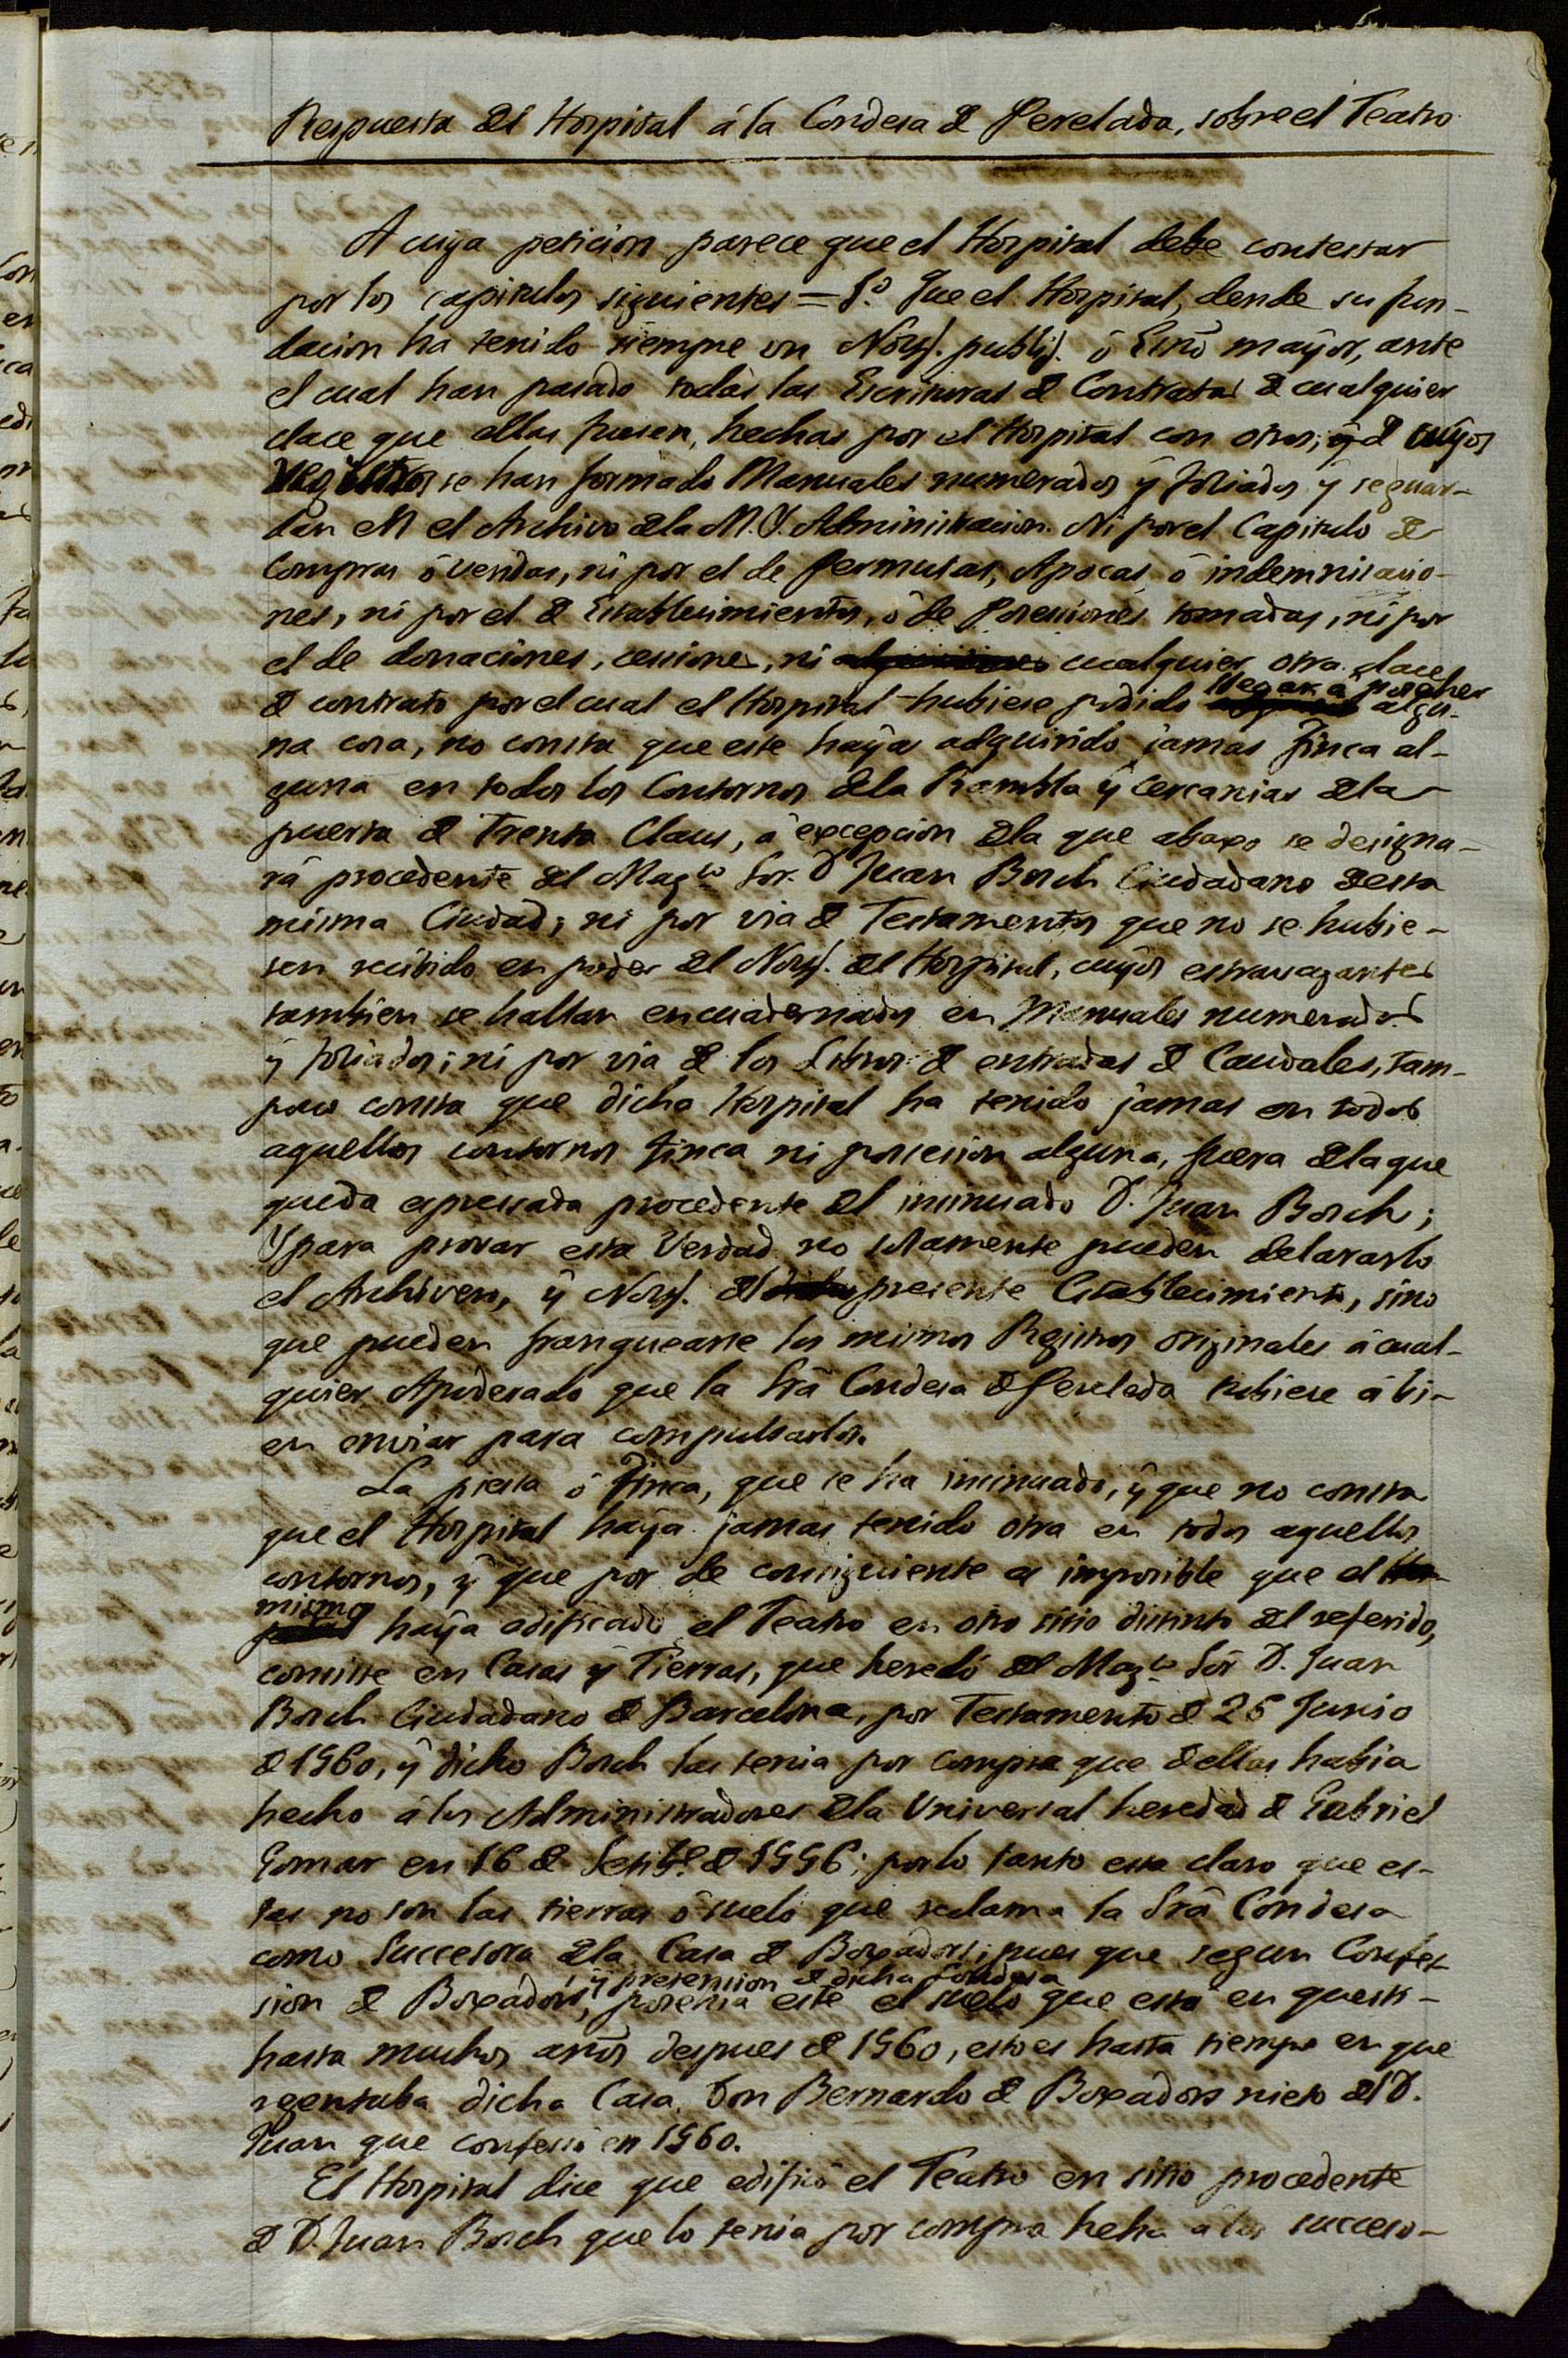 Respuesta del Hospital á la Condesa de Perelada, sobre el Teatro
A cuya peticion parece que el Hospital debe contestar
por los capitulos siguientes = 1.º Que el Hospital, desde su fun-
dacion ha tenido siempre un Noty. publiy. ó Essno mayor, ante
el cual han pasado todas las Escrituras de Contratas de cualquier
clace que ellas fuesen, hechas por el Hospital con otros; y de cuyos
registros se han formado Manuales numerados y foliados y se guar-
dan en el Archivo de la M. Y. Administracion. Ni por el Capitulo de
Compras ó vendas, ni por el de Permutas, Apocas ó indemnisacio-
nes, ni por el de Establecimientos, ó de Possesiones tomadas, ni por
el de donaciones, cessiones, ni cualquier otra clace
de contrato por el cual el Hospital hubiese podido llegar á posseher algu-
na cosa, no consta que este haya adquirido jamas finca al-
guna en todos los Contornos de la Rambla y cercanias de la
puerta de Trenta Claus, á excepcion de la que abaxo se designa-
rá procedente del Mag.co Sor. D Juan Bosch Ciudadano de esta
misma Ciudad; ni por via de Testamentos que no se hubie-
sen recibido en poder del Noty. del Hospital, cuyos estravagantes
tambien se hallan encuadernados en Manuales numerados
y foliados; ni por via de los Libros de entradas de Caudales, tam-
poco consta que dicho Hospital ha tenido jamas en todos
aquellos contornos finca ni possession alguna, fuera de la que
queda expressada procedente del insinuado D. Juan Bosch;
Y para provar esta Verdad no solamente pueden delararlo
el Archivero, y Noty. del presente Establecimiento, sino
que pueden franquearse los mismos Registros originales á cual-
quier Apoderado que la Sra Condesa de Perelada tubiese á bi-
en enviar para compulsarlos.
La piessa ó Finca, que se ha insinuado, y que no consta
que el Hospital haya jamas tenido otra en todos aquellos
contornos, y que por de consiguiente es imposible que el
mismo haya edificado el Teatro en otro sitio distinto del referido,
consiste en Casas y Tierras, que heredó del Mag.co Sor D. Juan
Bosch Ciudadano de Barcelona, por Testamento de 25 Junio
de 1560, y dicho Bosch las tenia por compra que de ellas habia
hecho á los Administradores de la Universal heredad de Gabriel
Gomar en 16 de Setibe. de 1556; por lo tanto esta claro que es-
tas no son las tierras ó suelo que reclama la Sra Condesa
como Successora de la Casa de Boxadors; pues que segun Confes-
sion de Boxadors, y pretension de dicha Condesa posehia este el suelo que está en questi-
hasta muchos años despues de 1560, esto es hasta tiempo en que
regentaba dicha Casa Don Bernardo de Boxadors nieto del D.
Juan que confessó en 1560.
El Hospital dice que edificó el Teatro en sitio procedente
de D. Juan Bosch que lo tenia por compra heha á los successo-